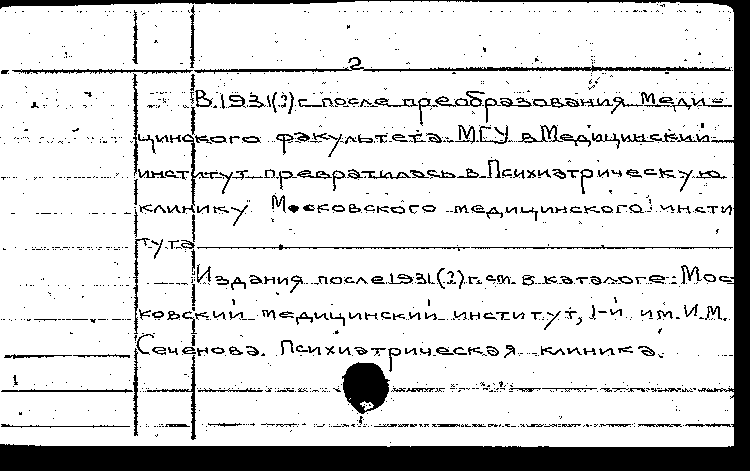 2
В 1931(?) г после преобразования Меди=
щинского факультета МГУ в Медицинский
институт превратилась в Психиатрическую
клинику Московского медицинского инсти
тута
Издания после 1931(?) г. см. в каталоге: Мос
ковский медицинский институт, 1-й им. И.М.
Сеченова. Психиатрическая клиника.
1